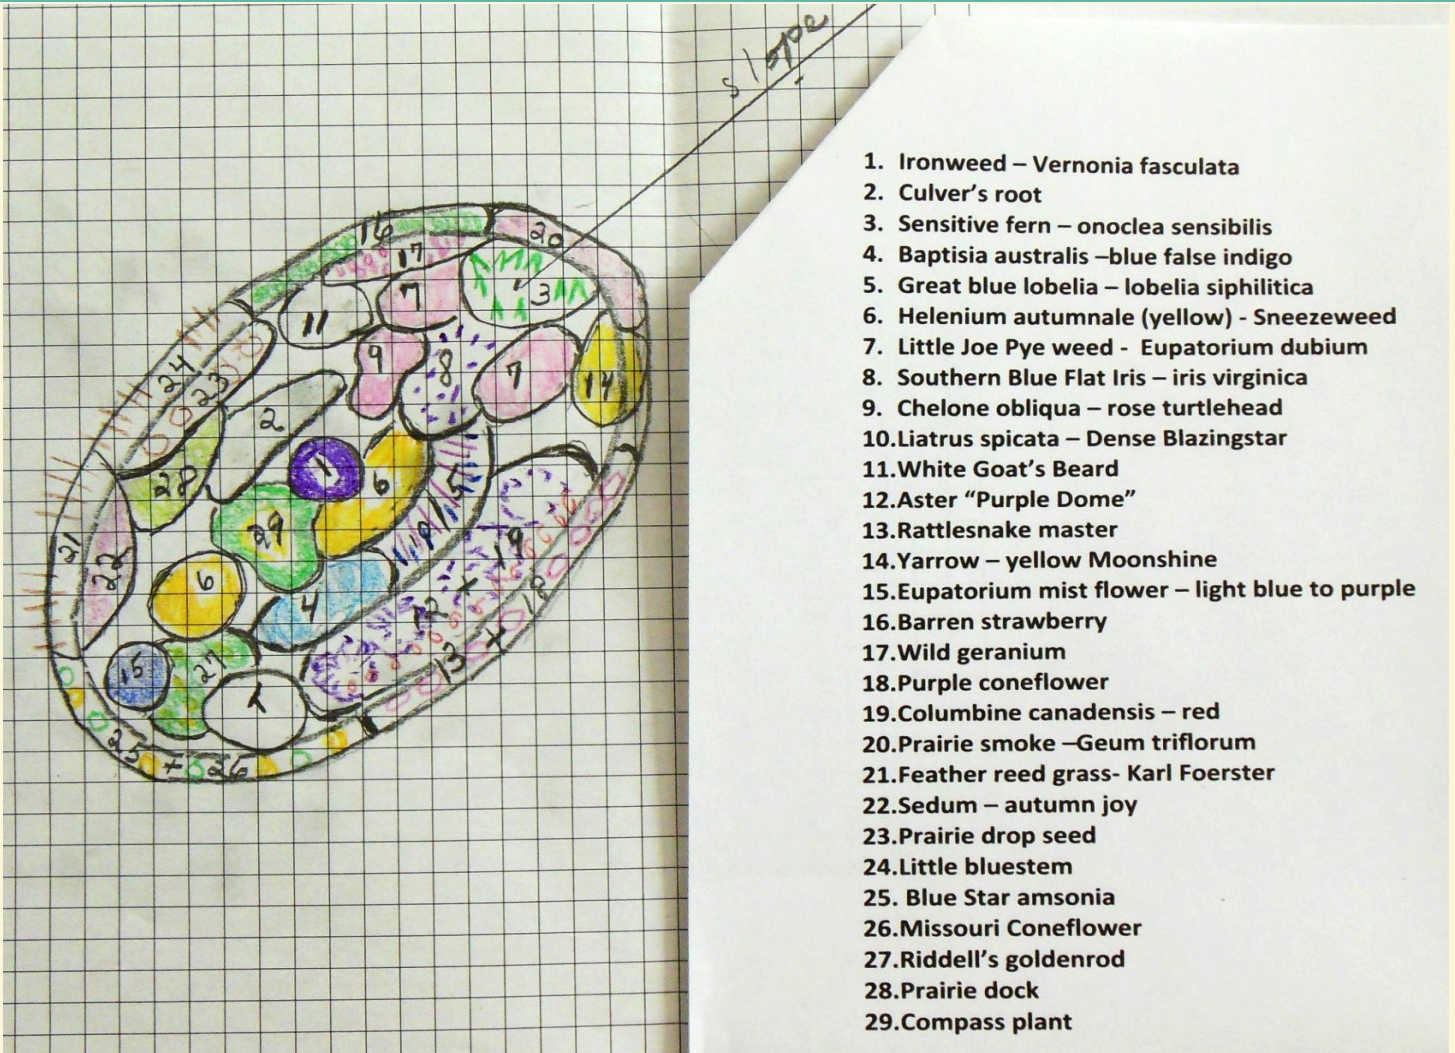 slope
16
20
17
7
3
11
9
8
7
14
24
23
2
28
1
6
5
29
19
21
22
6
4
12 +
18
15
27
13 +
25 + 26
1. Ironweed – Vernonia fasculata
2. Culver's root
3. Sensitive fern – onoclea sensibilis
4. Baptisia australis –blue false indigo
5. Great blue lobelia – lobelia siphilitica
6. Helenium autumnale (yellow) - Sneezeweed
7. Little Joe Pye weed - Eupatorium dubium
8. Southern Blue Flat Iris – iris virginica
9. Chelone obliqua – rose turtlehead
10.Liatrus spicata – Dense Blazingstar
11.White Goat's Beard
12.Aster “Purple Dome”
13.Rattlesnake master
14.Yarrow – yellow Moonshine
15.Eupatorium mist flower – light blue to purple
16.Barren strawberry
17.Wild geranium
18.Purple coneflower
19.Columbine canadensis – red
20.Prairie smoke –Geum triflorum
21.Feather reed grass- Karl Foerster
22.Sedum – autumn joy
23.Prairie drop seed
24.Little bluestem
25. Blue Star amsonia
26.Missouri Coneflower
27.Riddell's goldenrod
28.Prairie dock
29.Compass plant